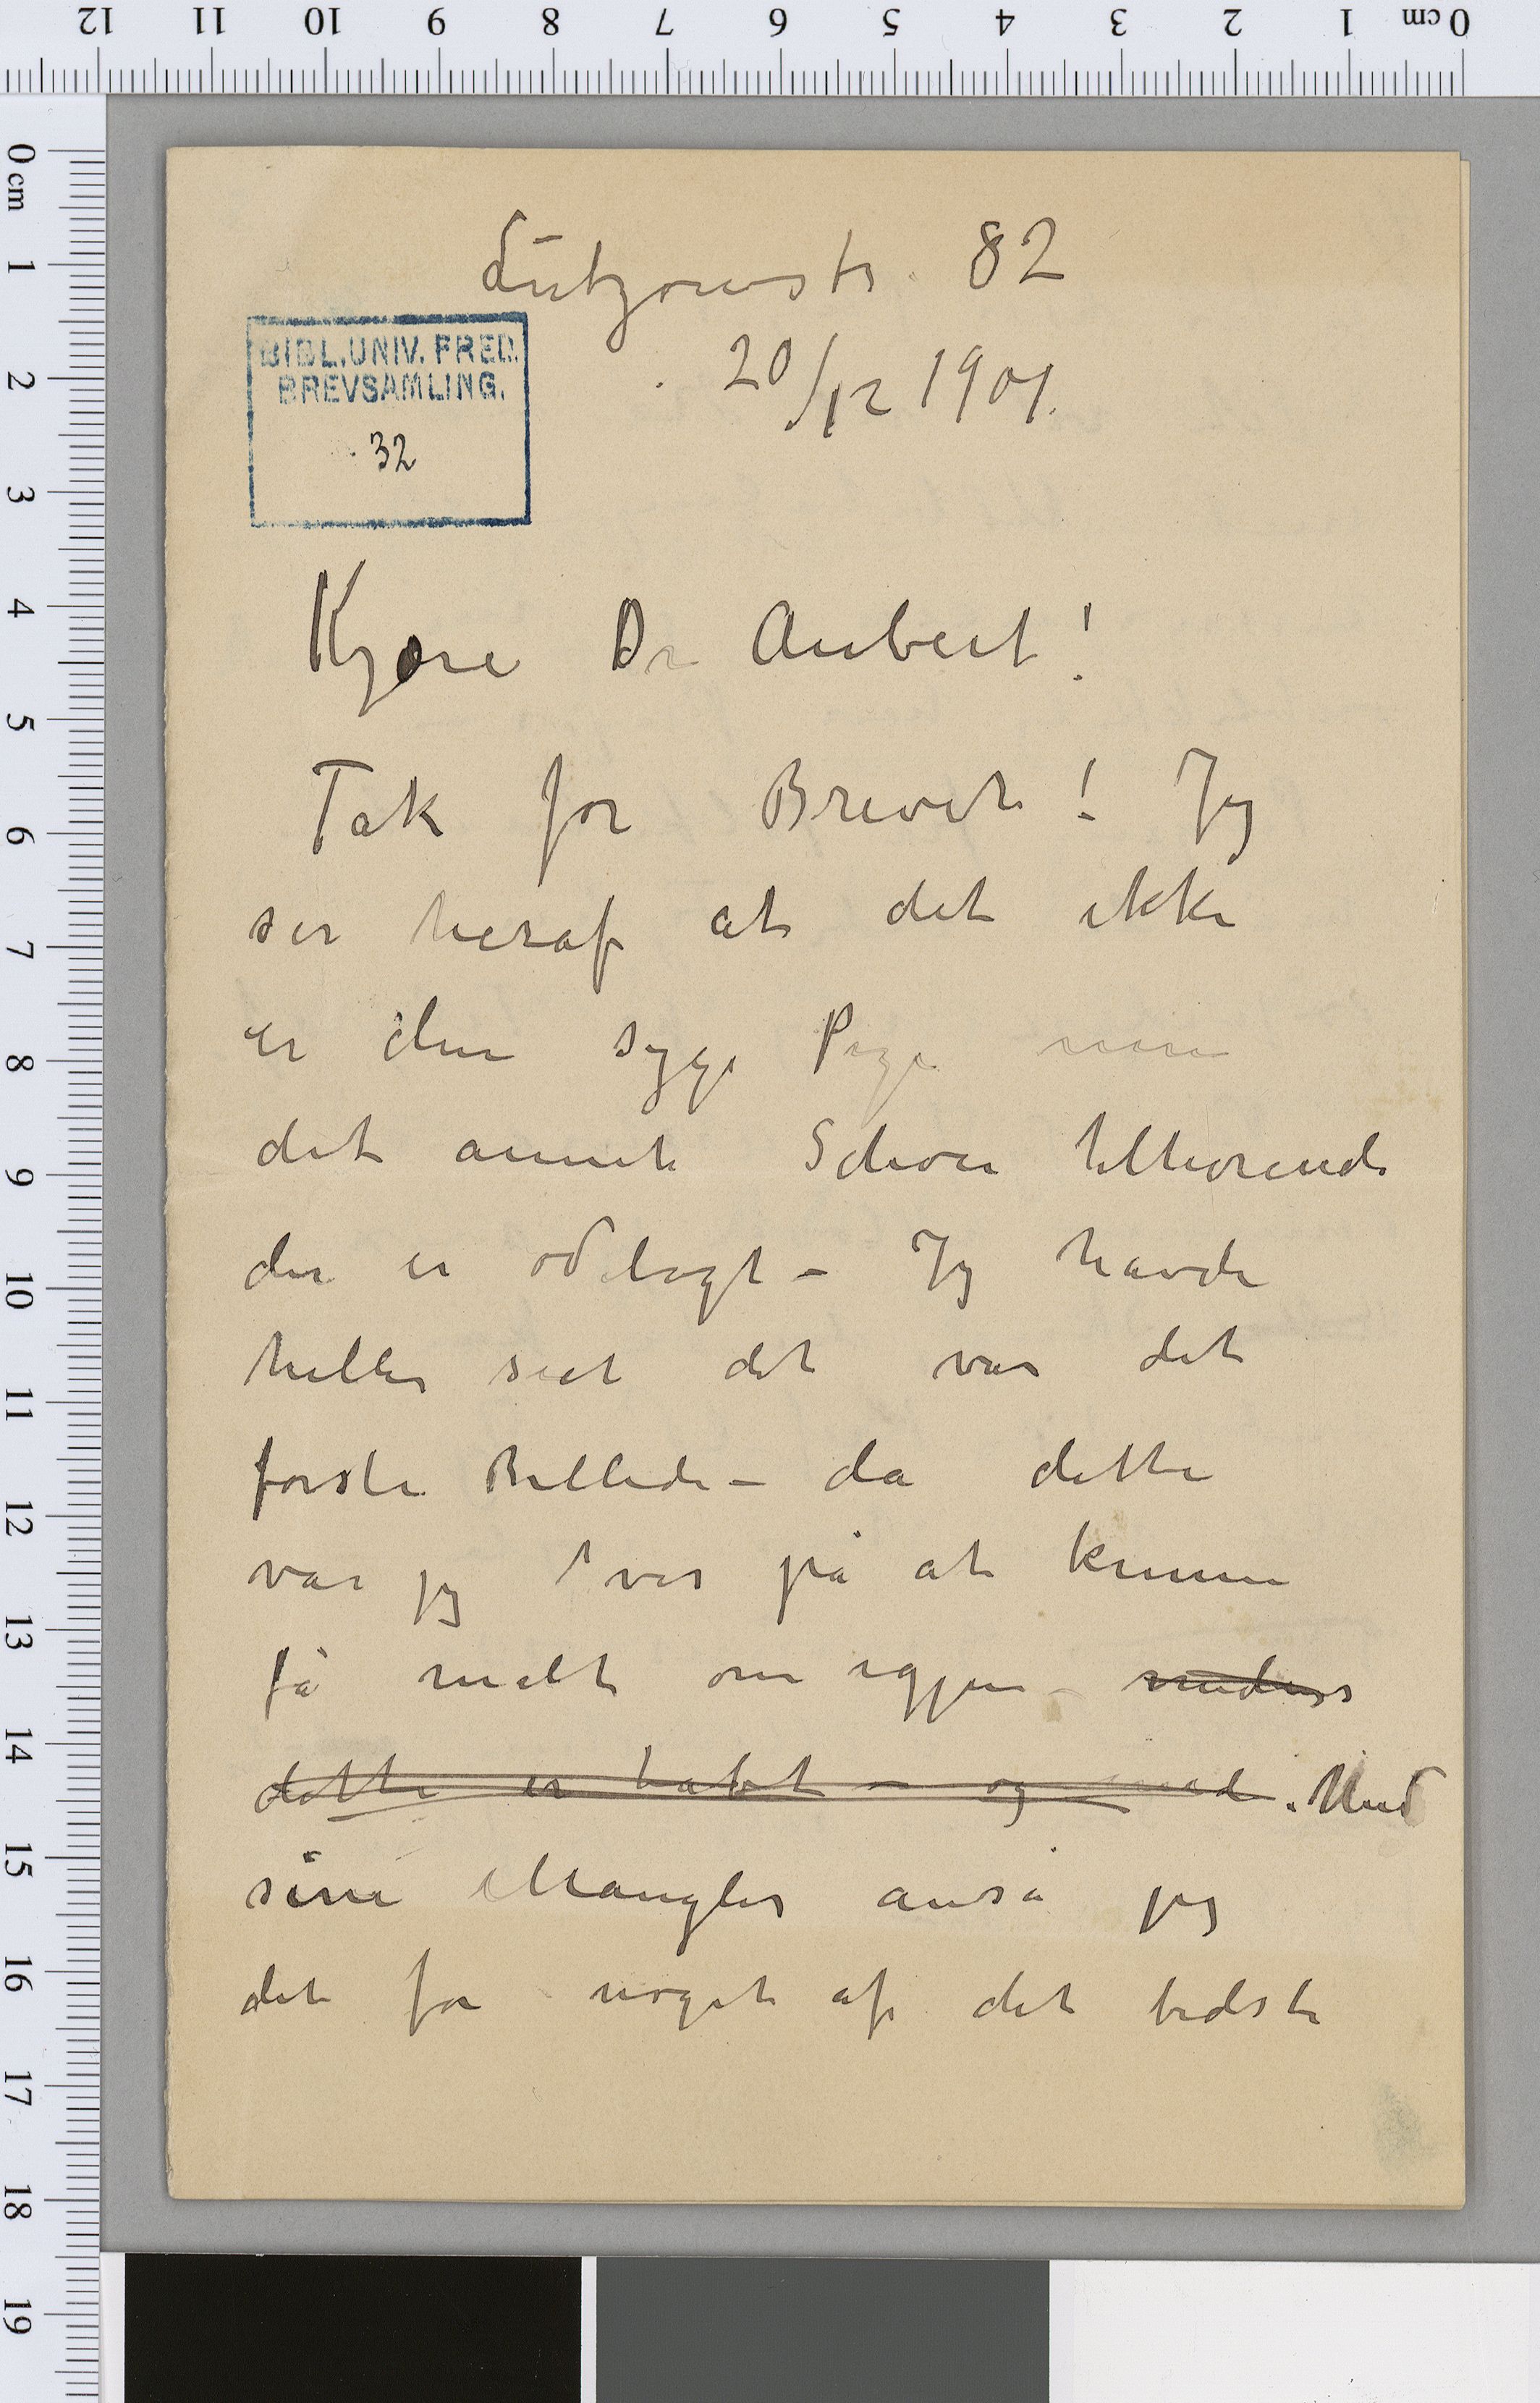 Lützowstr. 82
20/12 1901.
BIBL. UNIV. FRED.
BREVSAMLING.
32
Kjære Dr Aubert!
Tak for Brevet! Jeg
ser heraf at det ikke
er den syge Pige men
det annet Schou tilhørende
der er ødelagt – Jeg havde
heller seet det var det
første Billede – da dette
var jeg vis på at kunne
få malt om igjen –
dette er tabt – og med. Med
sine Mangler anså jeg
det for noget af det bedste
0 cm 1 2 3 4 5 6 7 8 9 10 11 12
0 cm 1 2 3 4 5 6 7 8 9 10 11 12 13 14 15 16 17 18 19